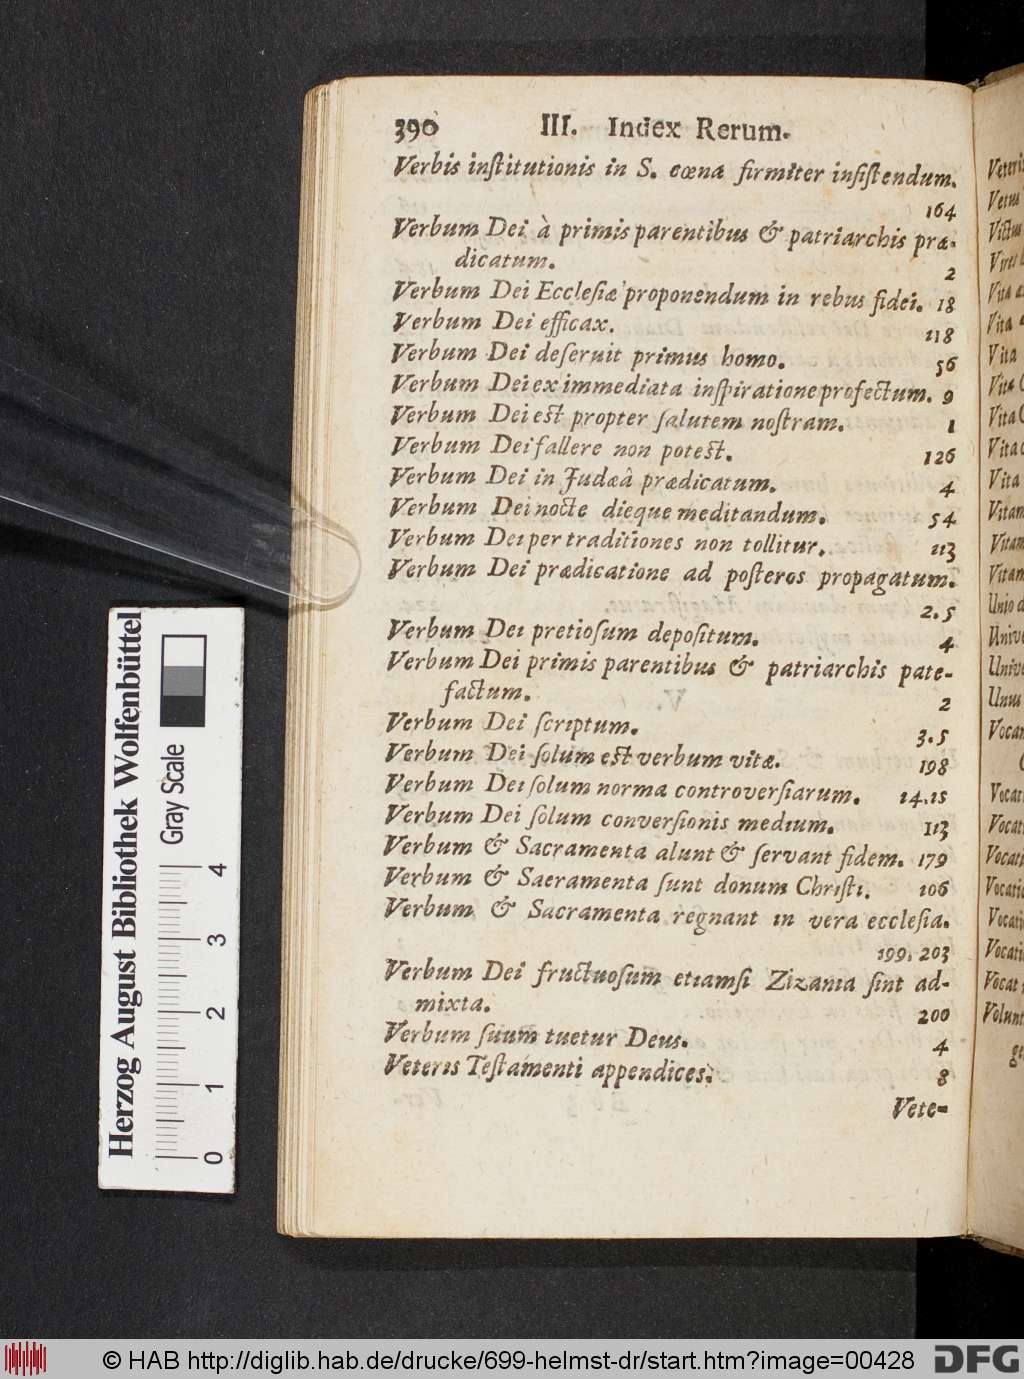 390 III. Index Rerum.
Verbis inſtitutionis in S. cœna firmiter inſiſtendum.
164
Verbum Dei à primis parentibus & patriarchis præ-
dicatum. 2
Verbum Dei Eccleſiæ proponendum in rebus fidei. 18
Verbum Dei efficax. 118
Verbum Dei deſeruit primus homo. 56
Verbum Dei ex immediata inſpiratione profectum. 9
Verbum Dei est propter ſalutem noſtram. 1
Verbum Dei fallere non potest. 126
Verbum Dei in Judæâ prædicatum. 4
Verbum Dei nocte dieque meditandum. 54
Verbum Dei per traditiones non tollitur. 113
Verbum Dei prædicatione ad poſteros propagatum.
2. 5
Verbum Dei pretioſum depoſitum. 4
Verbum Dei primis parentibus & patriarchis pate-
factum. 2
Verbum Dei ſcriptum. 3. 5
Verbum Dei ſolum est verbum vitæ. 198
Verbum Dei ſolum norma controverſiarum. 14.15
Verbum Dei ſolum converſionis medium. 113
Verbum & Sacramenta alunt & ſervant fidem. 179
Verbum & Sacramenta ſunt donum Chriſti. 106
Verbum & Sacramenta regnant in vera eccleſia.
199. 203
Verbum Dei fructuoſum etiamſi Zizania ſint ad-
mixta. 200
Verbum ſuum tuetur Deus. 4
Veteris Teſtamenti appendices. 8
Vete-
Vetus
Vita
Vita
Vita
Vita
Vitam
Vitam
Vitam
Herzog August Bibliothek Wolfenbüttel
Gray Scale
0 1 2 3 4
© HAB http://diglib.hab.de/drucke/699-helmst-dr/start.htm?image=00428
DFG